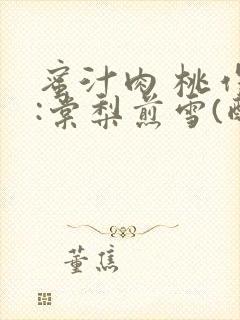 蜜汁肉桃作
:棠梨煎雪(
董焦